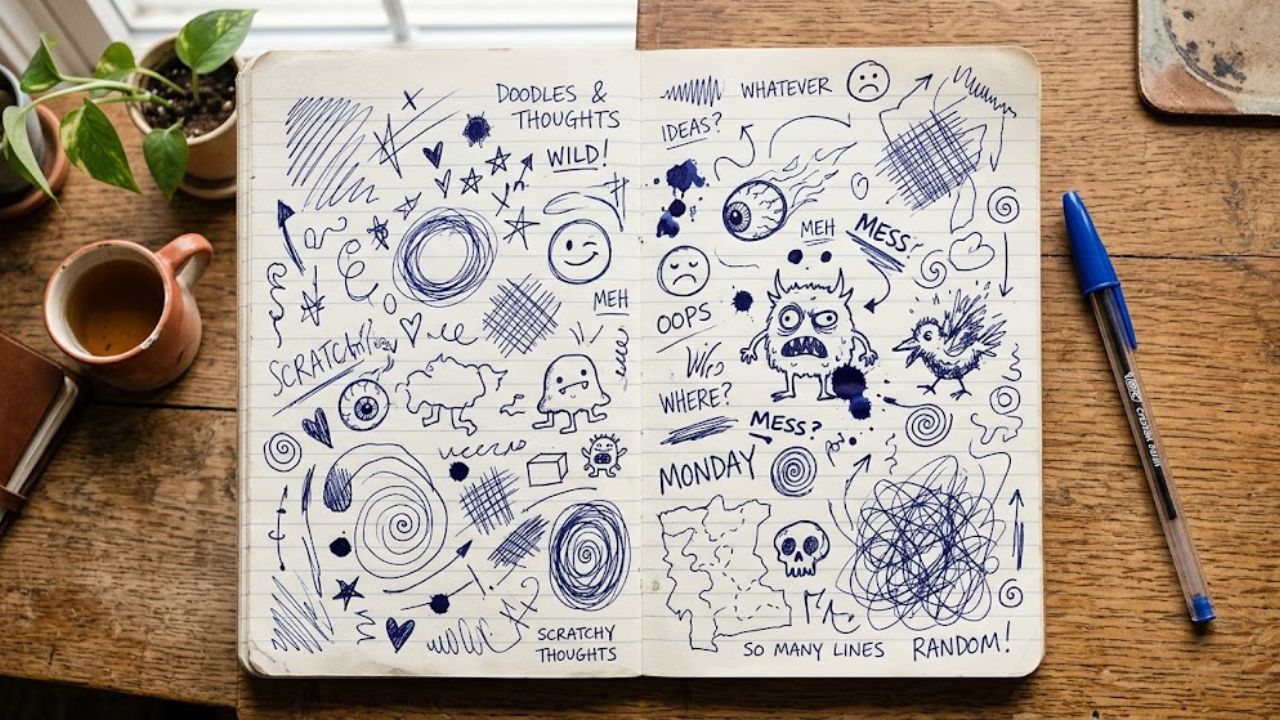 DOODLES &
THOUGHTS
WILD!
MEH
SCRATCHY
SCRATCHY
THOUGHTS
WHATEVER
IDEAS?
MEH
MESS!
OOPS
WHERE?
MESS?
MONDAY
SO MANY LINES
RANDOM!